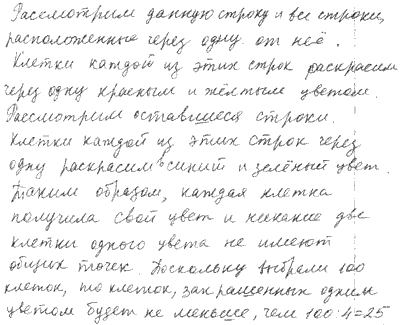 Рассмотрим данную строку и все строки,
расположенные через одну от неё.
Клетки каждой из этих строк раскрасим
через одну красным и жёлтым цветом.
Рассмотрим оставшиеся строки.
Клетки каждой из этих строк через
одну раскрасим в синий и зелёный цвет.
Таким образом, каждая клетка
получила свой цвет и никакие две
клетки одного цвета не имеют
общих точек. Поскольку выбрали 100
клеток, то клеток, закрашенных одним
цветом будет не меньше, чем 100:4=25